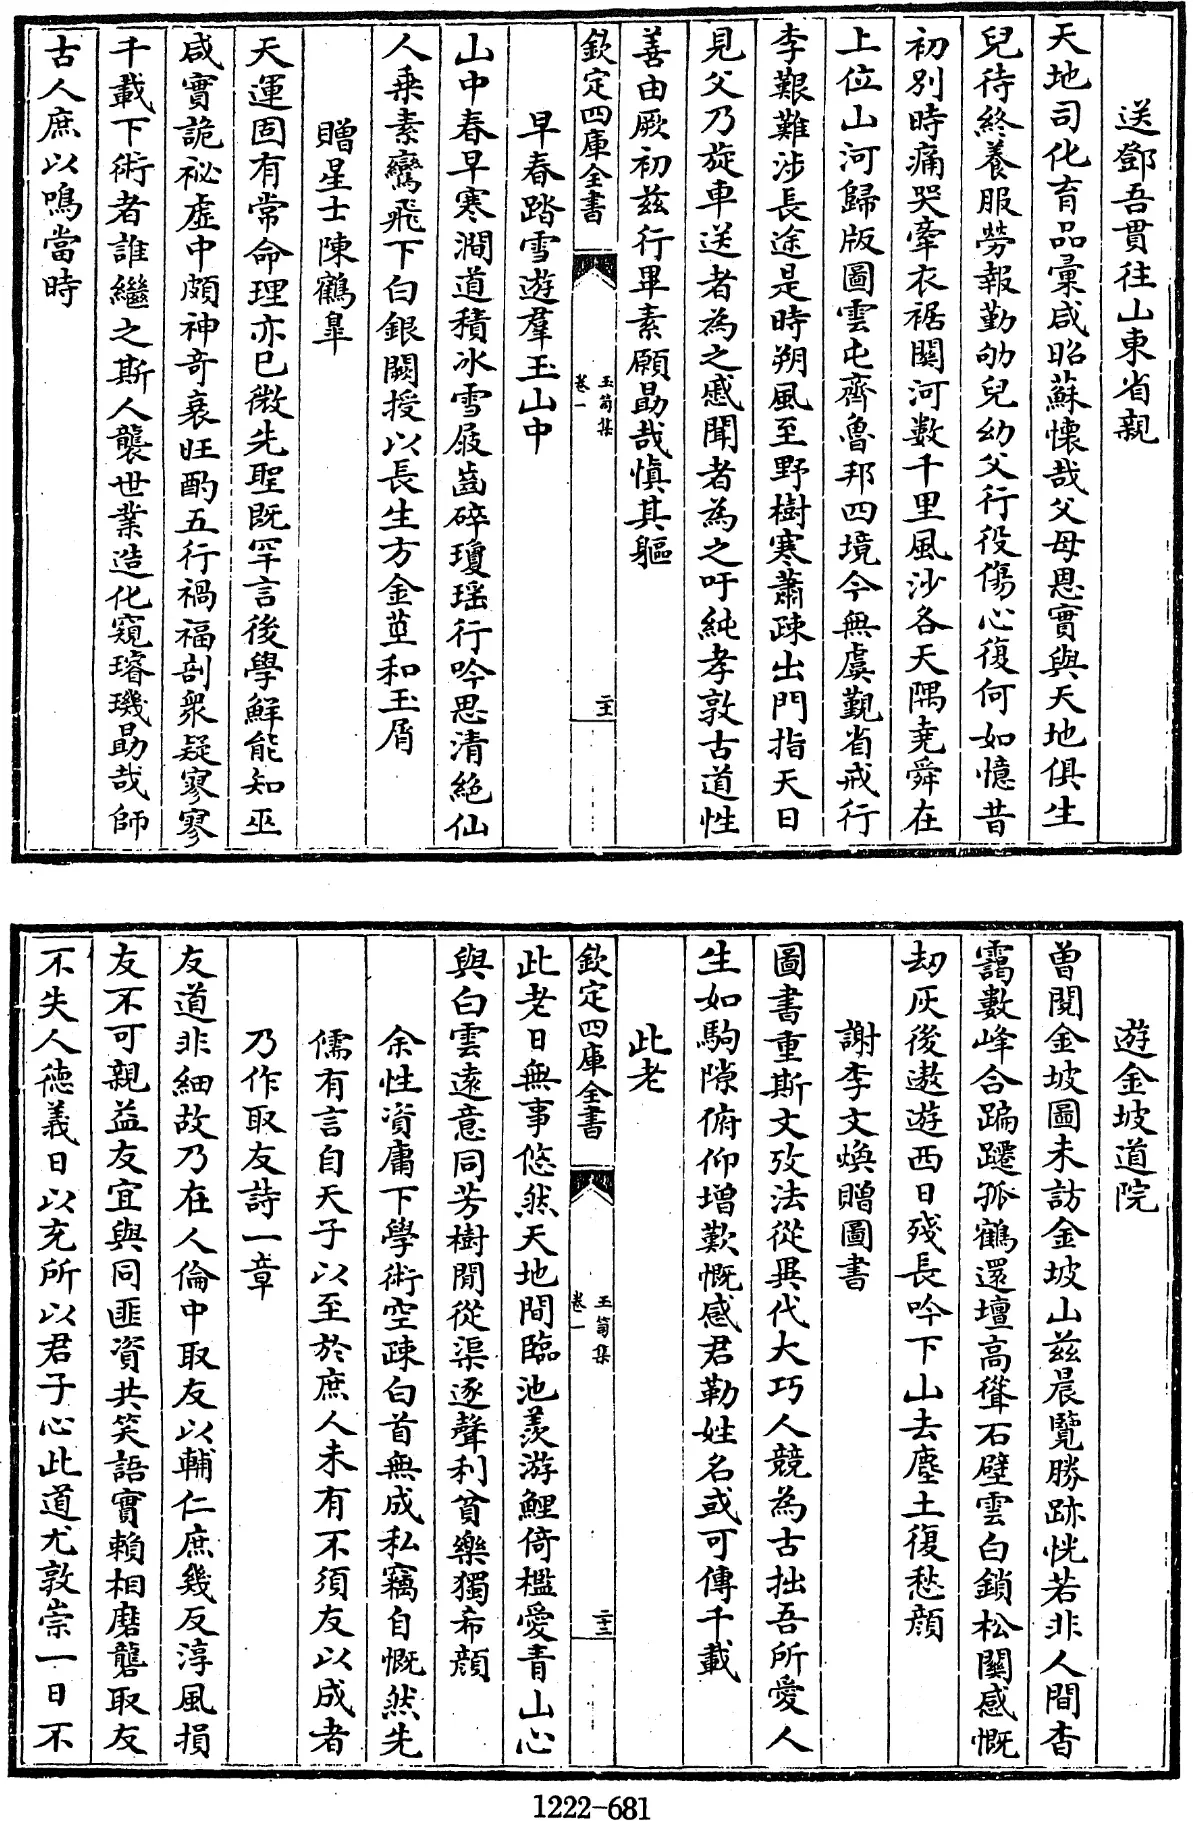 送鄧吾貫往山東省親
天地司化育品彙咸昭蘇懷哉父母恩實與天地俱生
兒待終養服勞報勤劬兒幼父行役傷心復何如憶昔
初別時痛哭牽衣裾關河數千里風沙各天隅堯舜在
上位山河歸版圖雲屯齊魯邦四境今無虞覲省戒行
李艱難涉長途是時朔風至野樹寒蕭疎出門指天日
見父乃旋車送者為之戚聞者為之吁純孝敦古道性
善由厥初茲行畢素願勗哉慎其軀
欽定四庫全書
玉笥集
卷一
二十二
早春踏雪遊羣玉山中
山中春早寒澗道積冰雪屐齒碎瓊瑤行吟思清絶仙
人乗素鸞飛下白銀闕授以長生方金莖和玉屑
贈星士陳鶴臯
天運固有常命理亦已微先聖既罕言後學鮮能知巫
咸實詭祕虛中頗神奇衰旺酌五行禍福剖衆疑寥寥
千載下術者誰繼之斯人襲世業造化窺璿璣勗哉師
古人庶以鳴當時
遊金坡道院
曽閱金坡圖未訪金坡山茲晨覽勝跡恍若非人間杳
靄數峰合蹁躚孤鶴還壇高聳石壁雲白鎖松關感慨
刼灰後遨遊西日殘長吟下山去塵土復愁顔
謝李文煥贈圖書
圖書重斯文攷法從異代大巧人競為古拙吾所愛人
生如駒隙俯仰增歎慨感君勒姓名或可傳千載
此老
欽定四庫全書
玉笥集
卷一
二十三
此老日無事悠然天地間臨池羨游鯉倚檻愛青山心
與白雲遠意同芳樹閒從渠逐聲利貧樂獨希顔
余性資庸下學術空疎白首無成私竊自慨然先
儒有言自天子以至於庶人未有不須友以成者
乃作取友詩一章
友道非細故乃在人倫中取友以輔仁庶幾反淳風損
友不可親益友宜與同匪資共笑語實賴相磨礲取友
不失人德義日以充所以君子心此道尤敦崇一日不
1222-681